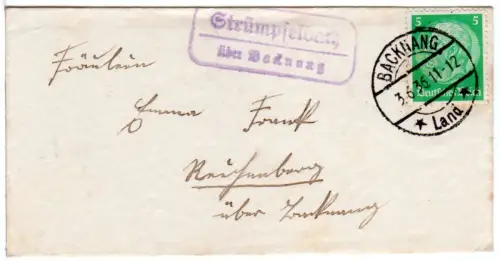 Strümpfelbach
über Backnang
5 5
BACKNANG
3.6.36.11-12
★ Land ★
Deutsches Reich
Fräulein
Emma Frank
Reichenberg
über Backnang